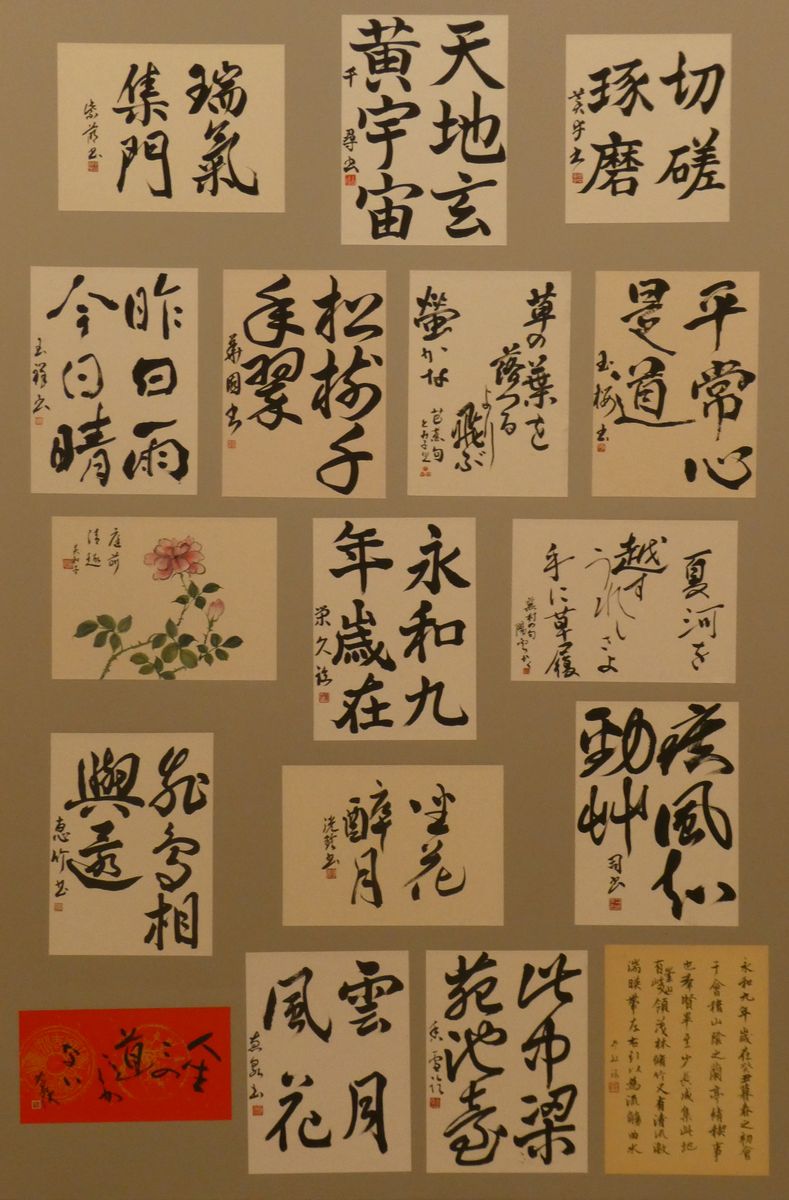 切磋
琢磨
天地玄
黄宇宙
千尋書
瑞氣
集門
平常心
是道
玉梅書
草の葉を
落つる
より
飛ぶ
螢かな
芭蕉句
松樹千
年翠
華園書
昨日雨
今日晴
玉祥書
夏河を
越す
うれしさよ
手に草履
蕪村の句
永和九
年歳在
栄久臨
庭前
清趣
疾風知
勁艸
司書
坐花
醉月
飛鳥相
與還
恵竹書
永和九年歳在癸丑暮春之初會
于會稽山陰之蘭亭脩禊事
也羣賢畢至少長咸集此地
有崇山峻領茂林脩竹又有清流激
湍暎帶左右引以爲流觴曲水
梁
苑池臺
雲月
風花
人生
道